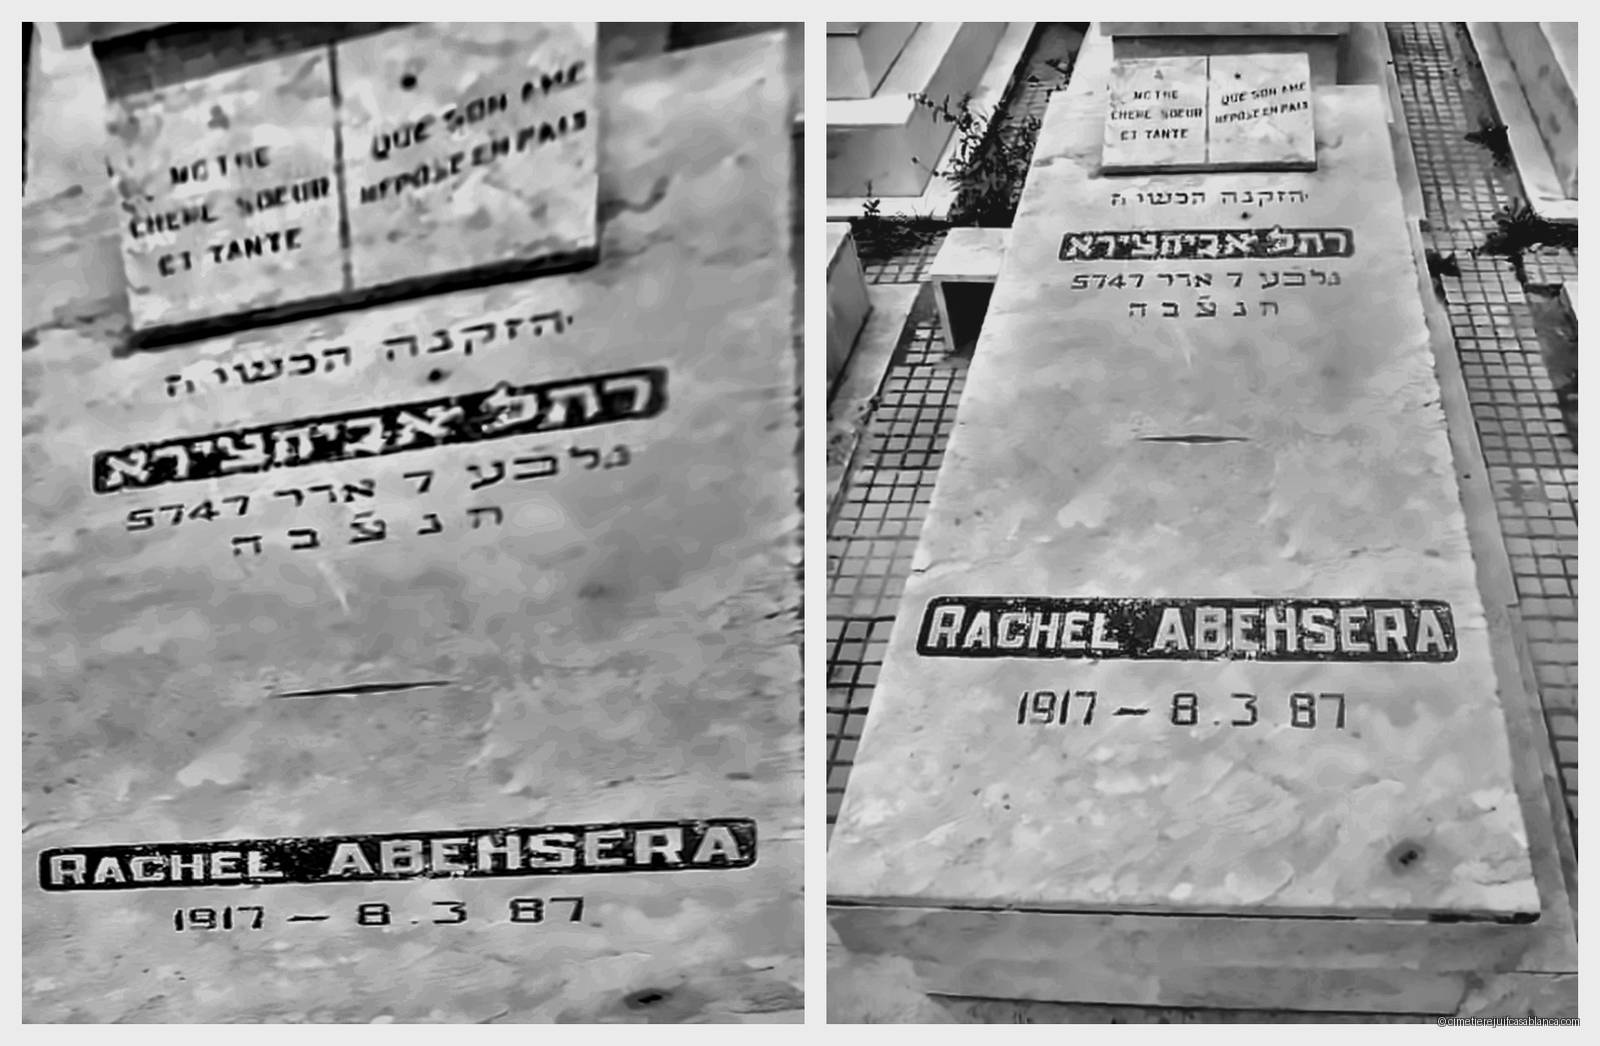 NOTRE
CHERE SOEUR
ET TANTE
QUE SON AME
REPOSE EN PAIX
הזקנה הכשירה
רחל אביחצירא
נלבע 7 אדר 5747
ת נ צ ב ה
RACHEL ABEHSERA
1917 – 8.3.87
NOTRE
CHERE SOEUR
ET TANTE
QUE SON AME
REPOSE EN PAIX
הזקנה הכשירה
רחל אביחצירא
נלבע 7 אדר 5747
ת נ צ ב ה
RACHEL ABEHSERA
1917 – 8.3.87
©cimetierejuifcasablanca.com